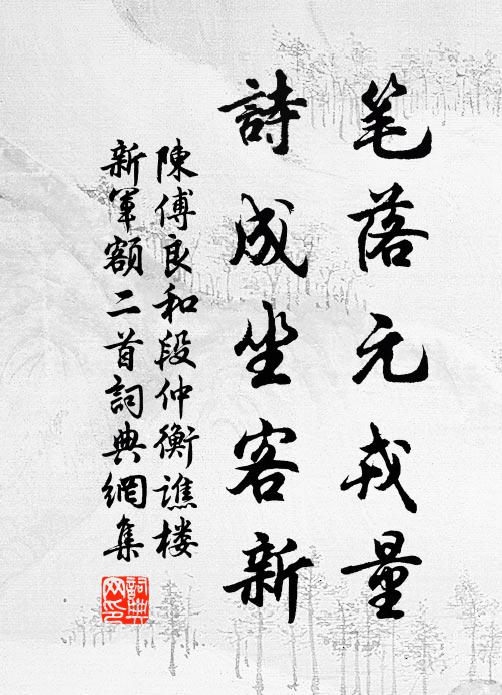 笔落元戎量
詩成坐客新
陳傅良和段仲衡譙楼
新軍額二首詞典網集